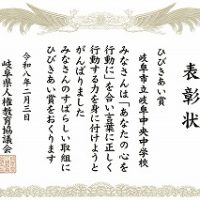 表彰状
ひびきあい賞
岐阜市立岐阜中央中学校
みなさんは「あなたの心を
行動に」を合い言葉に正しく
行動する力を身に付けようと
がんばりました
みなさんのすばらしい取組に
ひびきあい賞をおくります
令和八年二月三日
岐阜県人権教育協議会